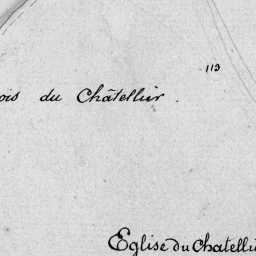 113
ois du Châtellier.
Eglise du Chatelli